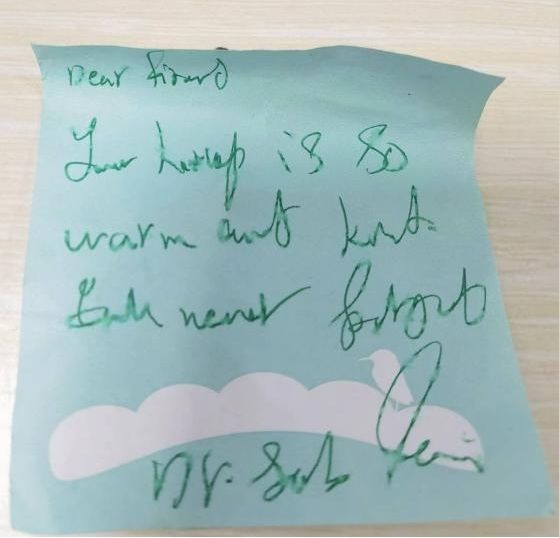 Dear friend
Your help is so
warm and kind.
I will never forget
Dr. Sab